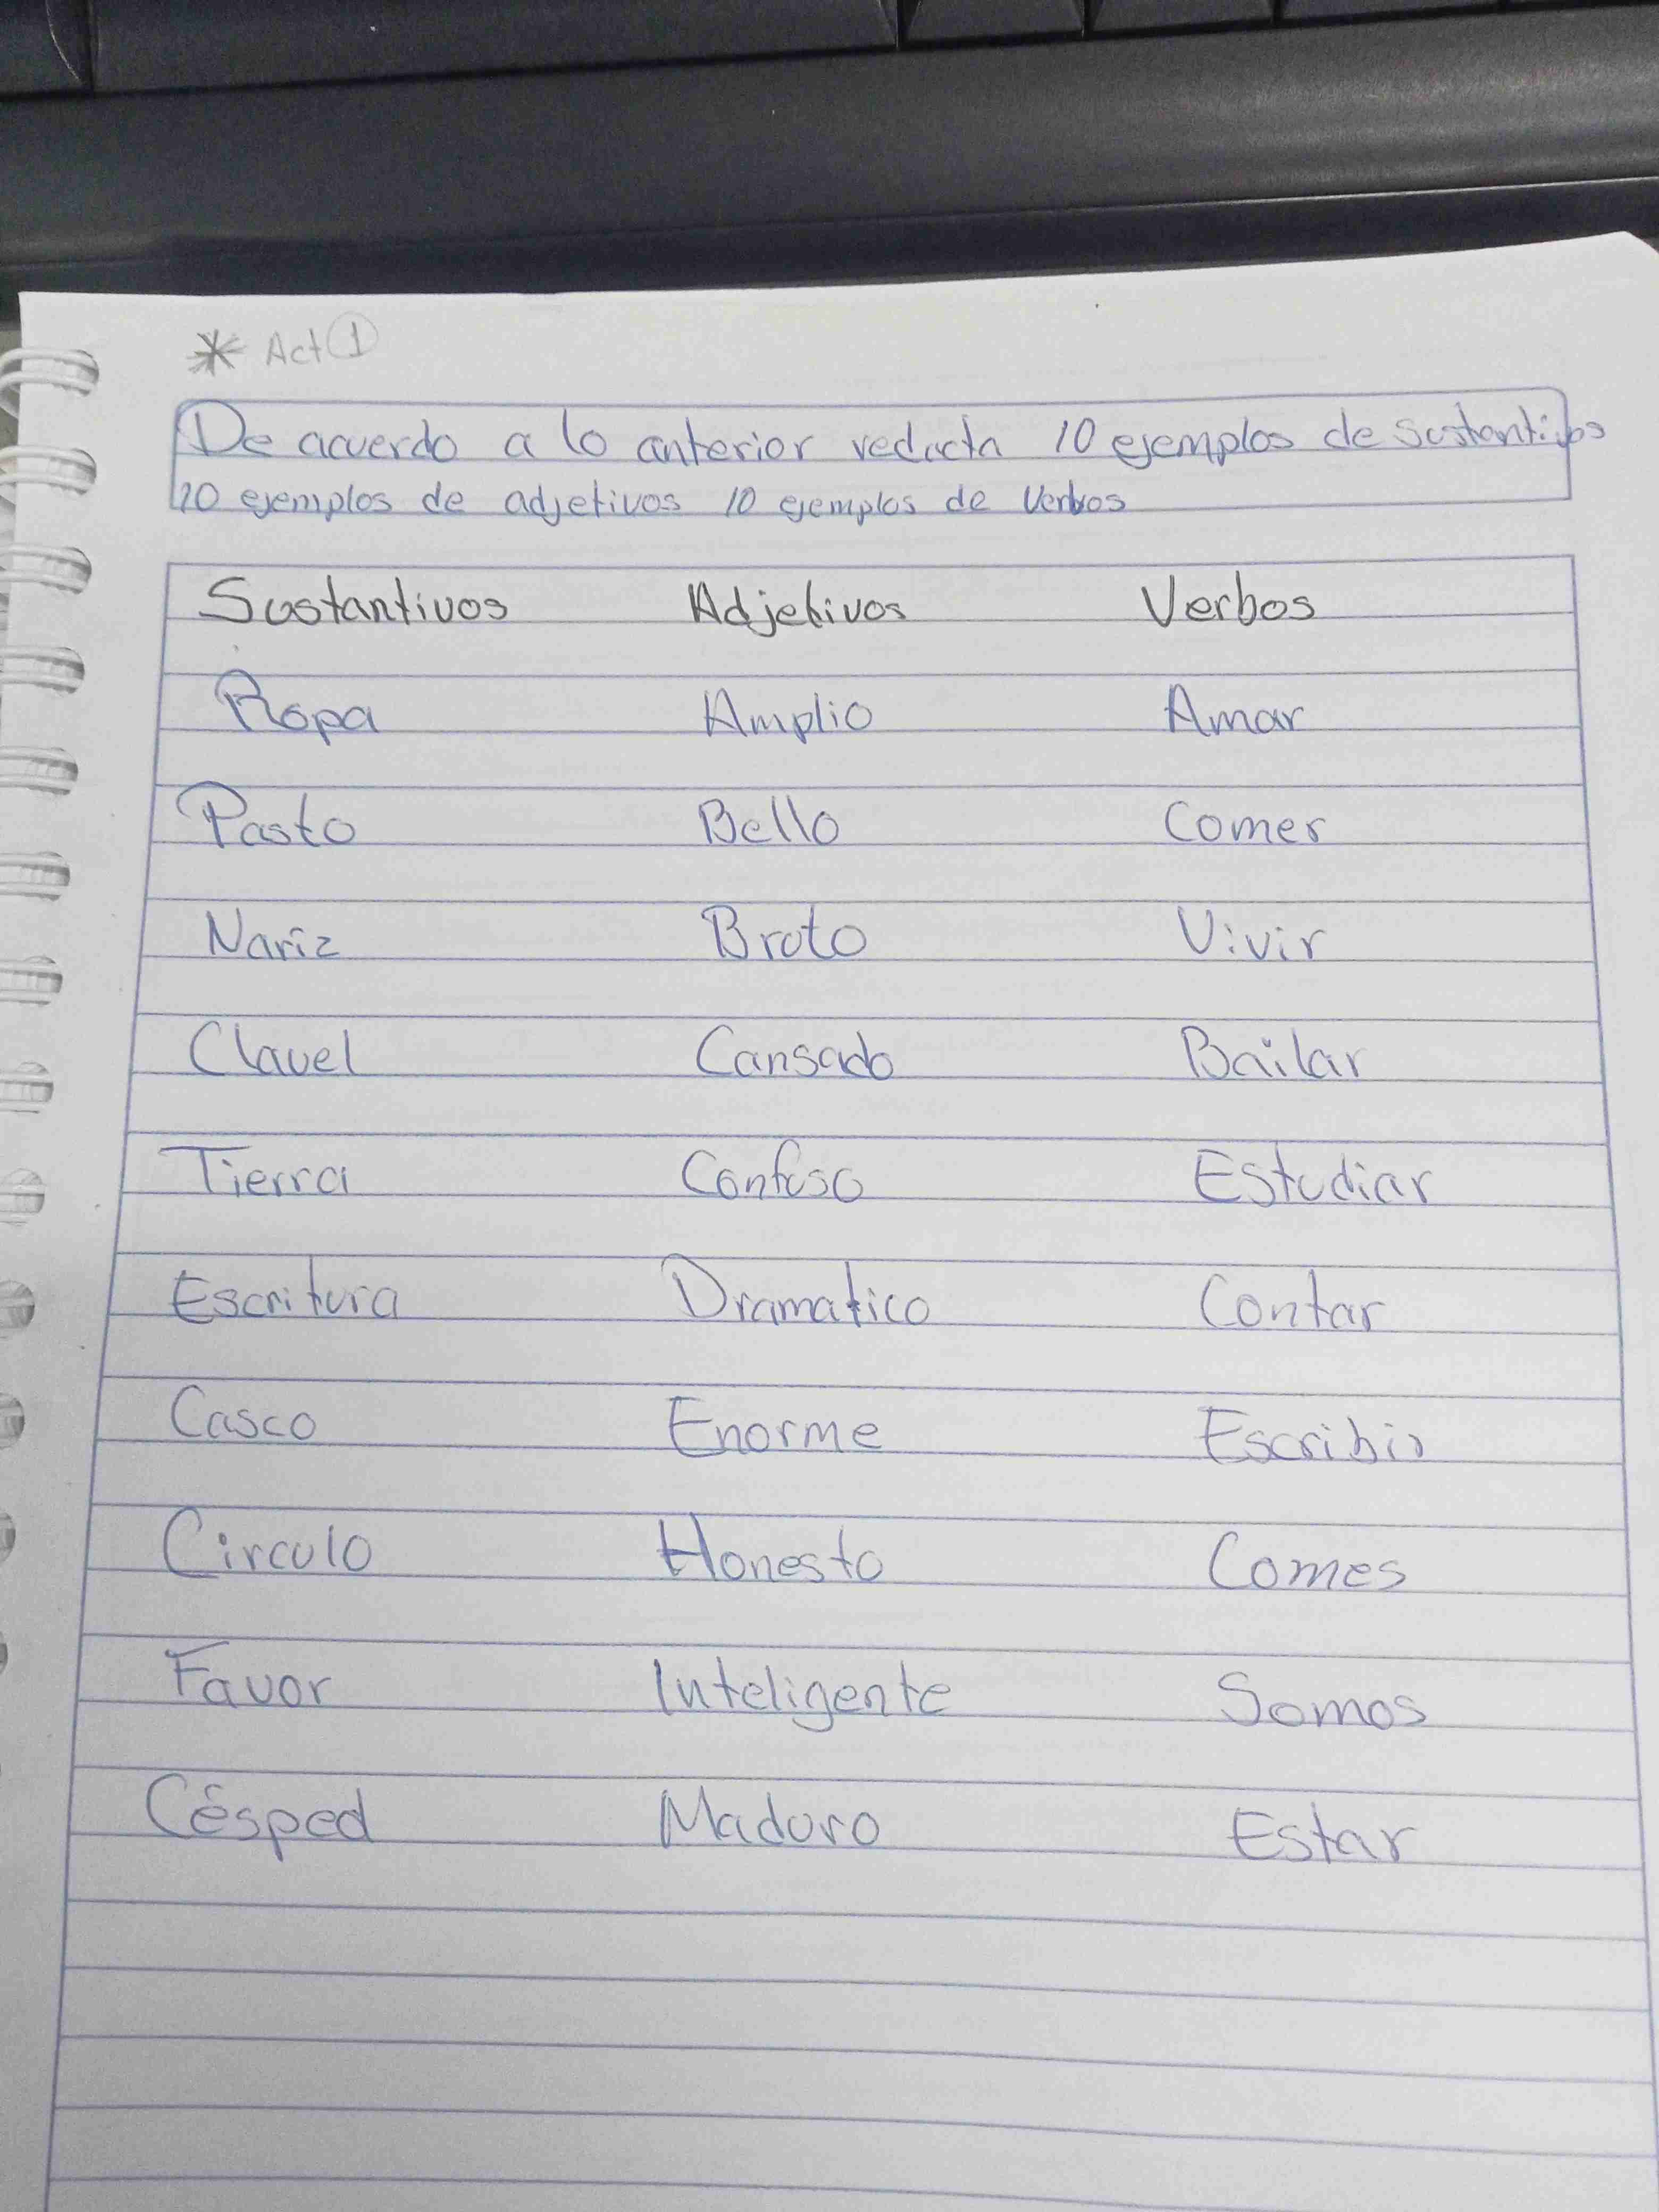 * Act 1
De acuerdo a lo anterior redacta 10 ejemplos de sustantivos
10 ejemplos de adjetivos 10 ejemplos de verbos
Sustantivos Adjetivos Verbos
Ropa Amplio Amar
Pasto Bello Comer
Nariz Bruto Vivir
Clavel Cansado Bailar
Tierra Confuso Estudiar
Escritura Dramatico Contar
Casco Enorme Escribir
Circulo Honesto Comes
Favor Inteligente Somos
Césped Maduro Estar